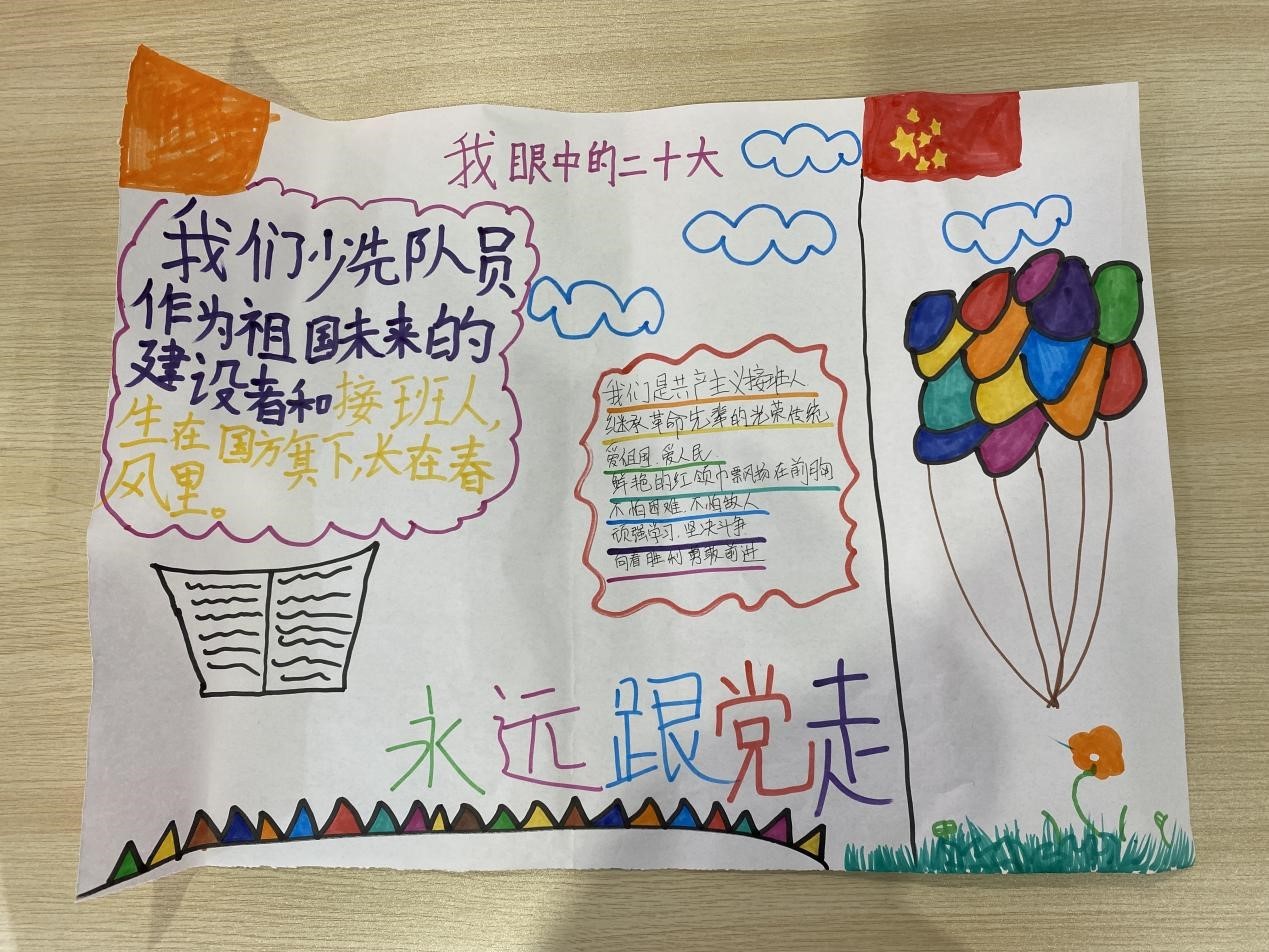 我眼中的二十大
我们少先队员
作为祖国未来的
建设者和接班人,
生在国旗下,长在春
风里。
我们是共产主义接班人
继承革命先辈的光荣传统
爱祖国.爱人民
鲜艳的红领巾飘扬在前胸
不怕困难.不怕敌人
顽强学习.坚决斗争
向着胜利勇敢前进
永远跟党走